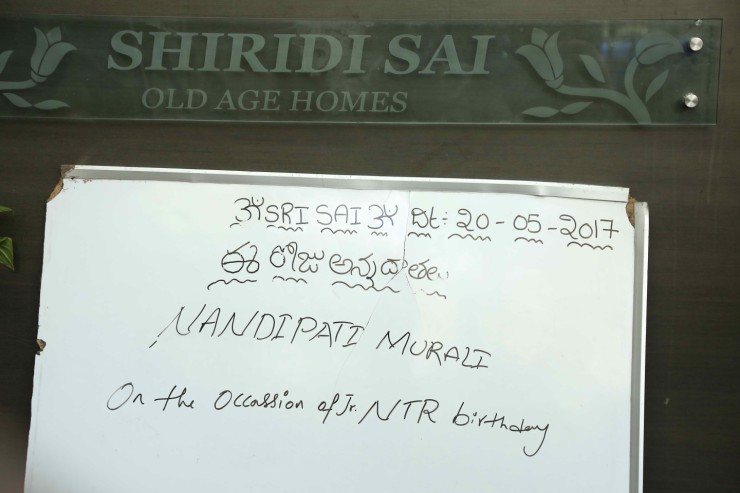 SHIRIDI SAI
OLD AGE HOMES
ॐ SRI SAI ॐ Dt: 20-05-2017
ఈ రోజు అన్నదాతలు
NANDIPATI MURALI
On the Occassion of Jr. NTR birthday